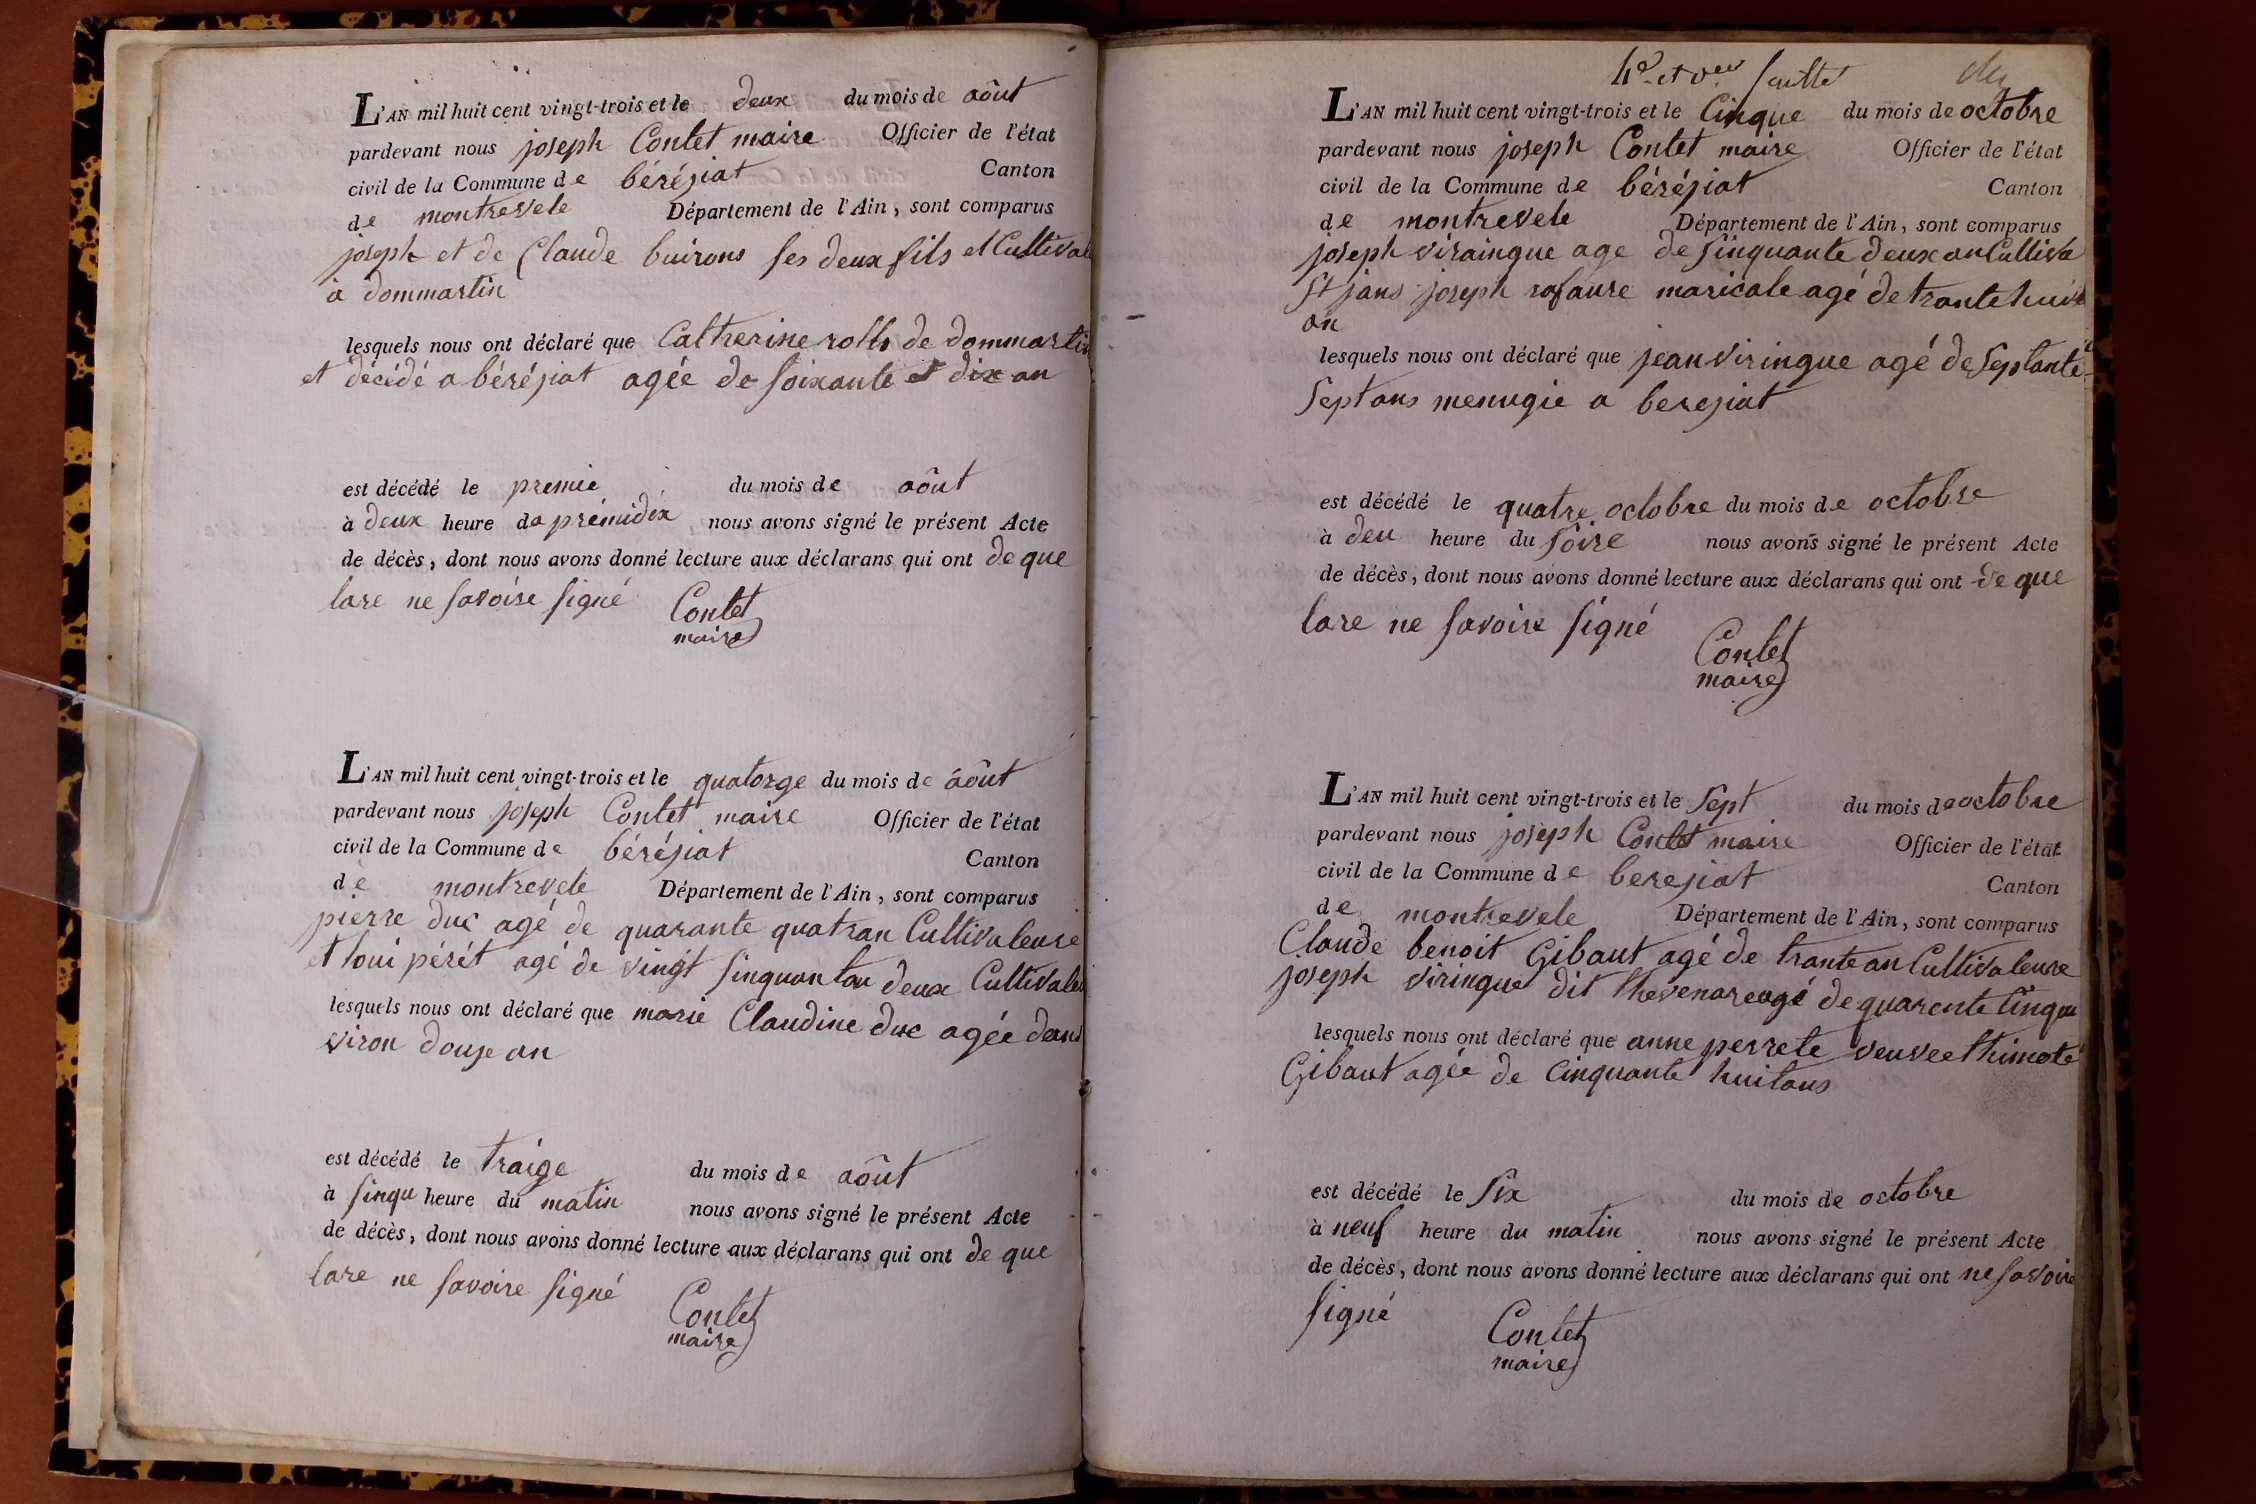 L'AN mil huit cent vingt-trois et le deux du mois de août
pardevant nous joseph Contet maire Officier de l'état
civil de la Commune de béréjiat Canton
de montrevele Département de l'Ain, sont comparus
joseph et de Claude buirons ses deux fils et Cultivat
a dommartin
lesquels nous ont déclaré que Catherine de dommartin
et décédé a béréjiat agée de soixante et dix an
est décédé le premie du mois de août
à deux heure da prémidix nous avons signé le présent Acte
de décès, dont nous avons donné lecture aux déclarans qui ont de que
lare ne savoire signé Contet
maire
L'AN mil huit cent vingt-trois et le quatorge du mois de août
pardevant nous joseph Contet maire Officier de l'état
civil de la Commune de béréjiat Canton
de montrevele Département de l'Ain, sont comparus
pierre duc agé de quarante quatran Cultivateure
et loui pérét agé de vingt sinquantou deux Cultivateu
lesquels nous ont déclaré que marie Claudine duc agée dans
viron douje an
est décédé le traige du mois de août
à sinqu heure du matin nous avons signé le présent Acte
de décès, dont nous avons donné lecture aux déclarans qui ont de que
lare ne savoire signé Contet
maire
4e et feuille
L'AN mil huit cent vingt-trois et le Cinque du mois de octobre
pardevant nous joseph Contet maire Officier de l'état
civil de la Commune de béréjiat Canton
de montrevele Département de l'Ain, sont comparus
joseph viraingue age de sinquante deux an Cultiva
St jans joseph rafaure maricale agé de trante huit
an
lesquels nous ont déclaré que jean viringue agé de septante
sept ans menugie a berejiat
est décédé le quatre octobre du mois de octobre
à deu heure du soire nous avons signé le présent Acte
de décès, dont nous avons donné lecture aux déclarans qui ont de que
lare ne savoire signé
Contet
maire
L'AN mil huit cent vingt-trois et le sept du mois de octobre
pardevant nous joseph Contet maire Officier de l'état
civil de la Commune de berejiat Canton
de montrevele Département de l'Ain, sont comparus
Claude benoit Gibaut agé de trante an Cultivateure
joseph viringue dit thevenare agé de quarente Cinqu
lesquels nous ont déclaré que anne perrete veuve thimoté
Gibaut agée de Cinquante huitans
est décédé le six du mois de octobre
à neuf heure du matin nous avons signé le présent Acte
de décès, dont nous avons donné lecture aux déclarans qui ont ne savoire
signé Contet
maire